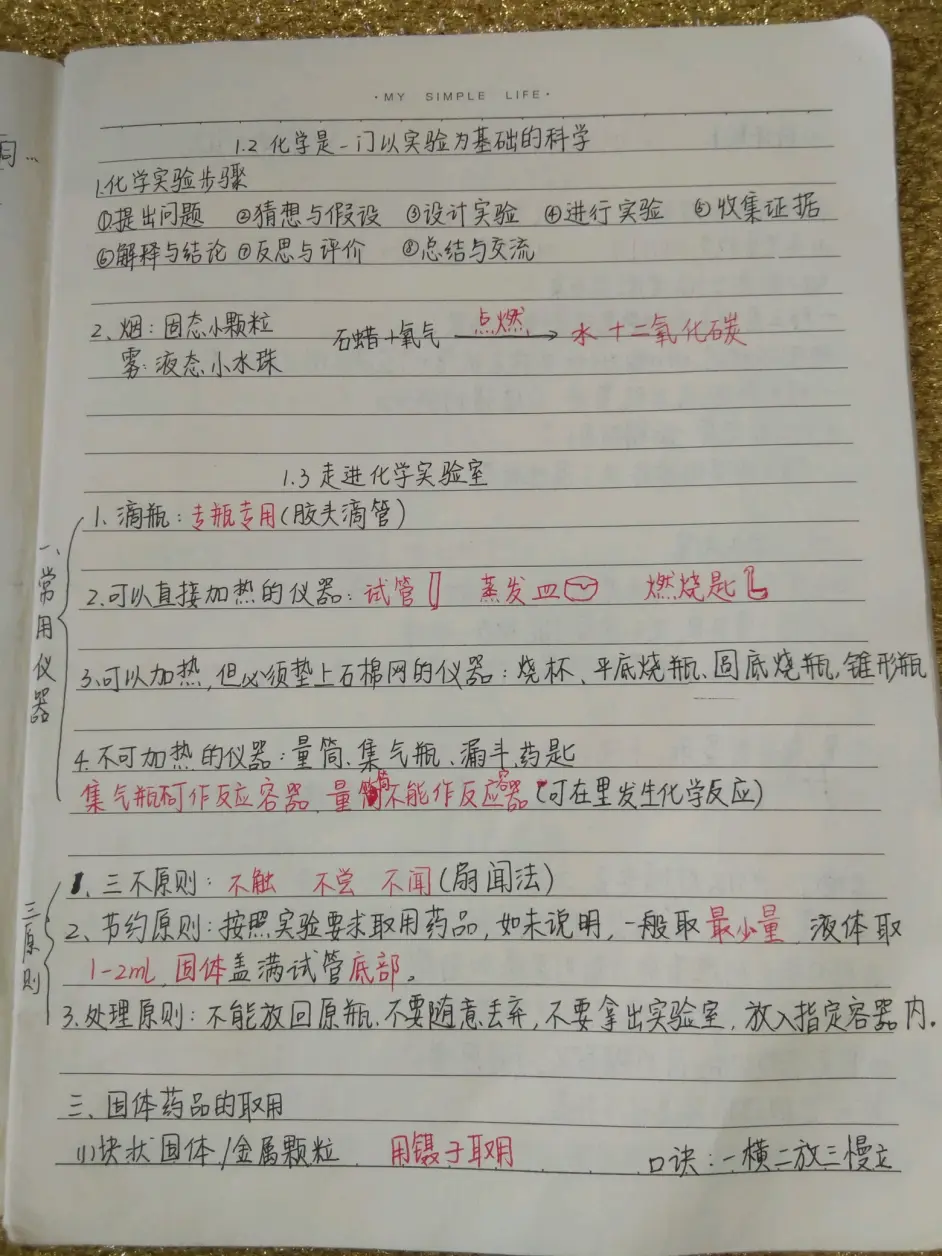 同…
·MY SIMPLE LIFE·
1.2 化学是一门以实验为基础的科学
1.化学实验步骤
①提出问题 ②猜想与假设 ③设计实验 ④进行实验 ⑤收集证据
⑥解释与结论 ⑦反思与评价 ⑧总结与交流
2.烟：固态小颗粒 石蜡+氧气 —点燃→ 水+二氧化碳
雾：液态小水珠
1.3 走进化学实验室
一、常用仪器
1.滴瓶：专瓶专用(胶头滴管)
2.可以直接加热的仪器：试管 蒸发皿 燃烧匙
3.可以加热,但必须垫上石棉网的仪器：烧杯、平底烧瓶、圆底烧瓶,锥形瓶
4.不可加热的仪器：量筒、集气瓶、漏斗、药匙
集气瓶可作反应容器,量筒不能作反应容器(可在里发生化学反应)
三原则
1、三不原则：不触 不尝 不闻(扇闻法)
2、节约原则：按照实验要求取用药品,如未说明,一般取最少量,液体取
1-2mL,固体盖满试管底部。
3.处理原则：不能放回原瓶、不要随意丢弃,不要拿出实验室,放入指定容器内.
三、固体药品的取用
(1)块状固体/金属颗粒 用镊子取用 口诀：一横二放三慢立